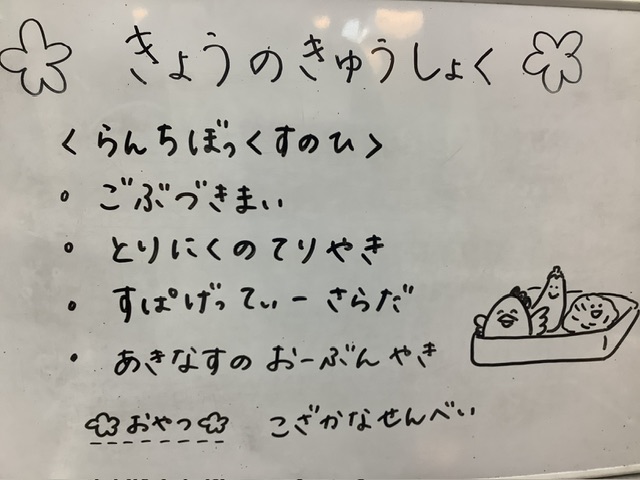 きょうのきゅうしょく
<らんちぼっくすのひ>
・ごぶづきまい
・とりにくのてりやき
・すぱげってぃーさらだ
・あきなすのおーぶんやき
おやつ こざかなせんべい